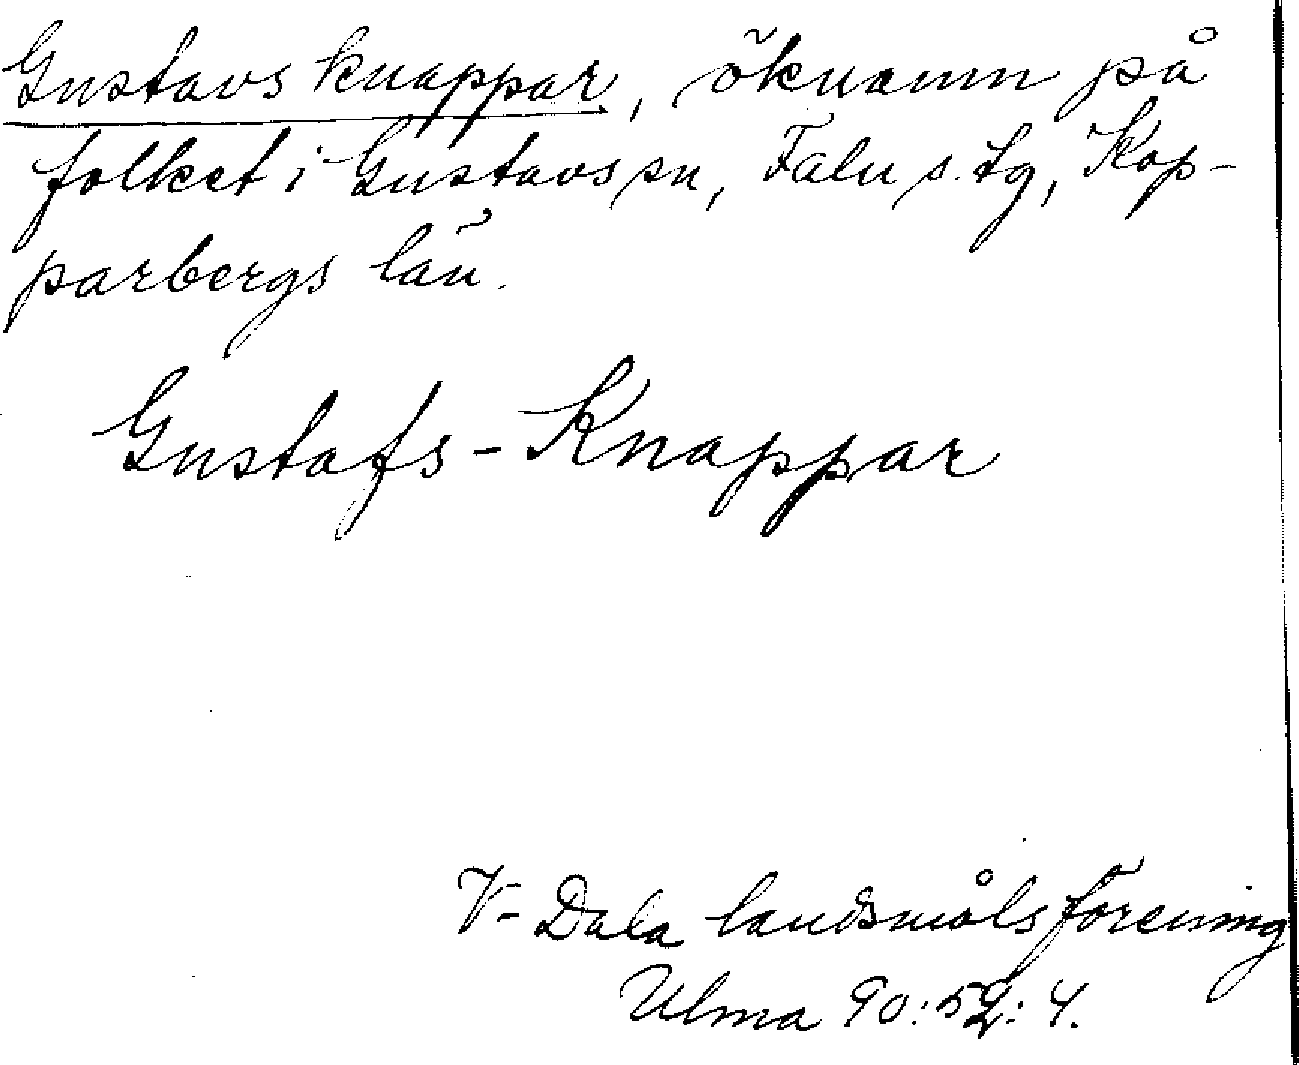 Gustavs knappar, öknamn på
folket i Gustavs sn, Falu s. tg, Kop-
parbergs län.
Gustafs-Knappar
V-Dala landsmålsförening
Ulma 90:52:4.